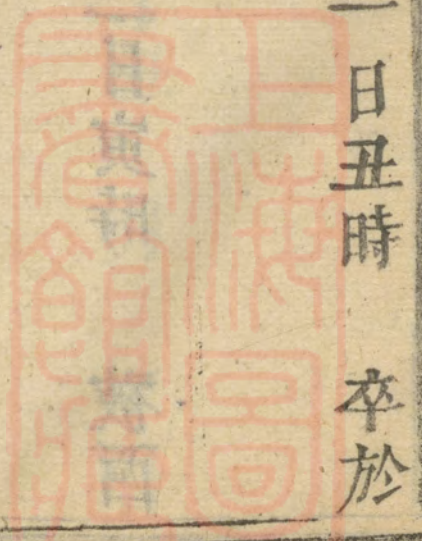 一日丑時　卒於
上海圖
書館藏